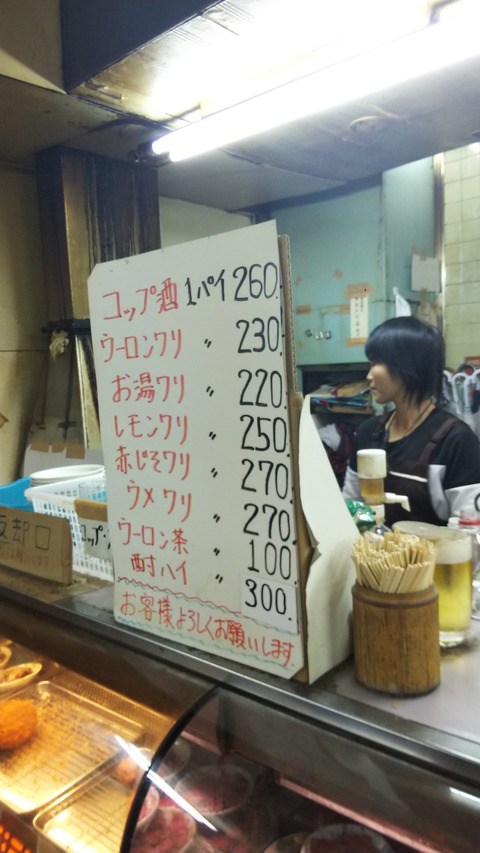 コップ酒 1パイ 260.
ウーロンワリ 〃 230.
お湯ワリ 〃 220.
レモンワリ 〃 250
赤じそワリ 〃 270
ウメワリ 〃 270.
ウーロン茶 〃 100
酎ハイ 〃 300.
お客様よろしくお願いします
返却口
コップ